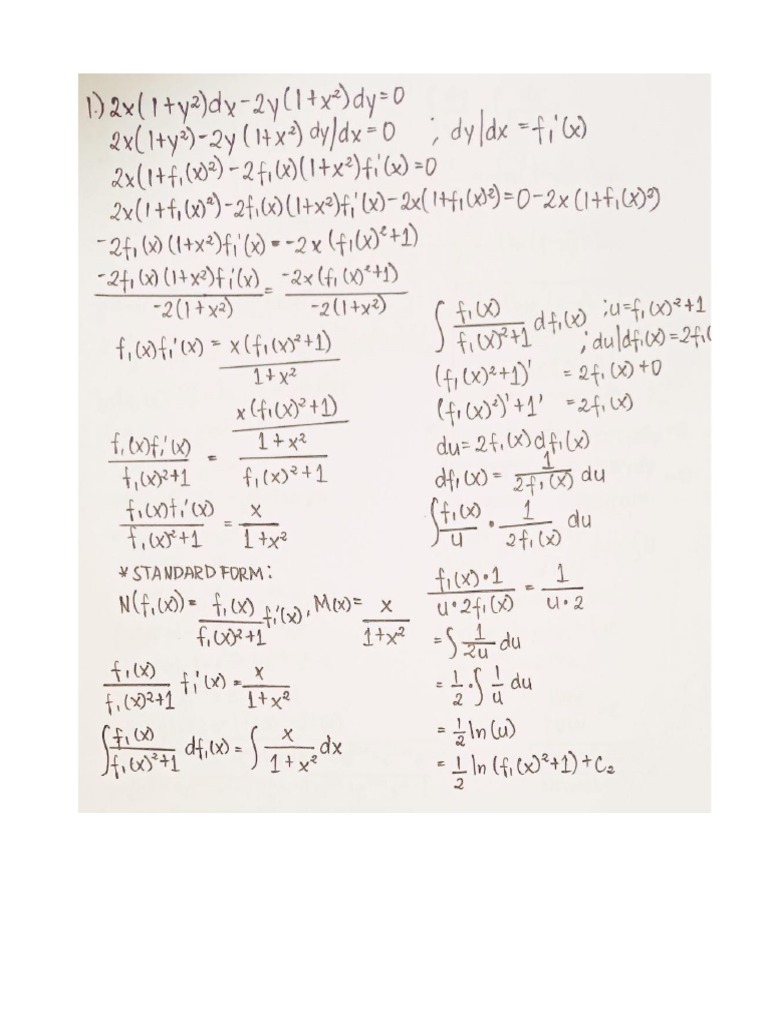 1.) 2x(1+y²)dx-2y(1+x²)dy=0
2x(1+y²)-2y(1+x²) dy/dx=0 ; dy/dx = f₁'(x)
2x(1+f₁(x)²)-2f₁(x)(1+x²)f₁'(x)=0
2x(1+f₁(x)²)-2f₁(x)(1+x²)f₁'(x)-2x(1+f₁(x)²)=0-2x(1+f₁(x)²)
-2f₁(x)(1+x²)f₁'(x)=-2x(f₁(x)²+1)
-2f₁(x)(1+x²)f₁'(x)/-2(1+x²) = -2x(f₁(x)²+1)/-2(1+x²)
f₁(x)f₁'(x) = x(f₁(x)²+1)/1+x²
f₁(x)f₁'(x)/f₁(x)²+1 = x(f₁(x)²+1)/1+x²/f₁(x)²+1
f₁(x)f₁'(x)/f₁(x)²+1 = x/1+x²
*STANDARD FORM:
N(f₁(x))= f₁(x)/f₁(x)²+1 f₁'(x), M(x)= x/1+x²
f₁(x)/f₁(x)²+1 f₁'(x) = x/1+x²
∫f₁(x)/f₁(x)²+1 df₁(x) = ∫ x/1+x² dx
∫ f₁(x)/f₁(x)²+1 df₁(x) ;u=f₁(x)²+1
;du/df₁(x)=2f₁(
(f₁(x)²+1)' = 2f₁(x)+0
(f₁(x)²)'+1' =2f₁(x)
du=2f₁(x)df₁(x)
df₁(x)= 1/2f₁(x) du
∫f₁(x)/u · 1/2f₁(x) du
f₁(x)·1/u·2f₁(x) = 1/u·2
=∫ 1/2u du
= 1/2·∫ 1/u du
= 1/2 ln(u)
= 1/2 ln (f₁(x)²+1)+C₂